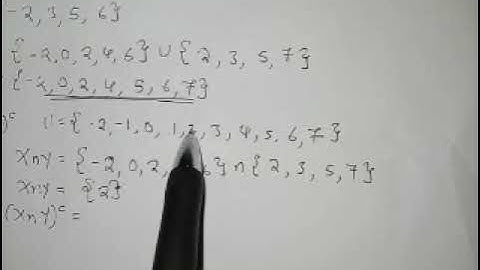 -2, 3, 5, 6}
{-2, 0, 2, 4, 6} ∪ {2, 3, 5, 7}
{-2, 0, 2, 4, 5, 6, 7}
)ᶜ U = {-2, -1, 0, 1, 2, 3, 4, 5, 6, 7}
X∩Y = {-2, 0, 2, 6} ∩ {2, 3, 5, 7}
X∩Y = {2}
(X∩Y)ᶜ =